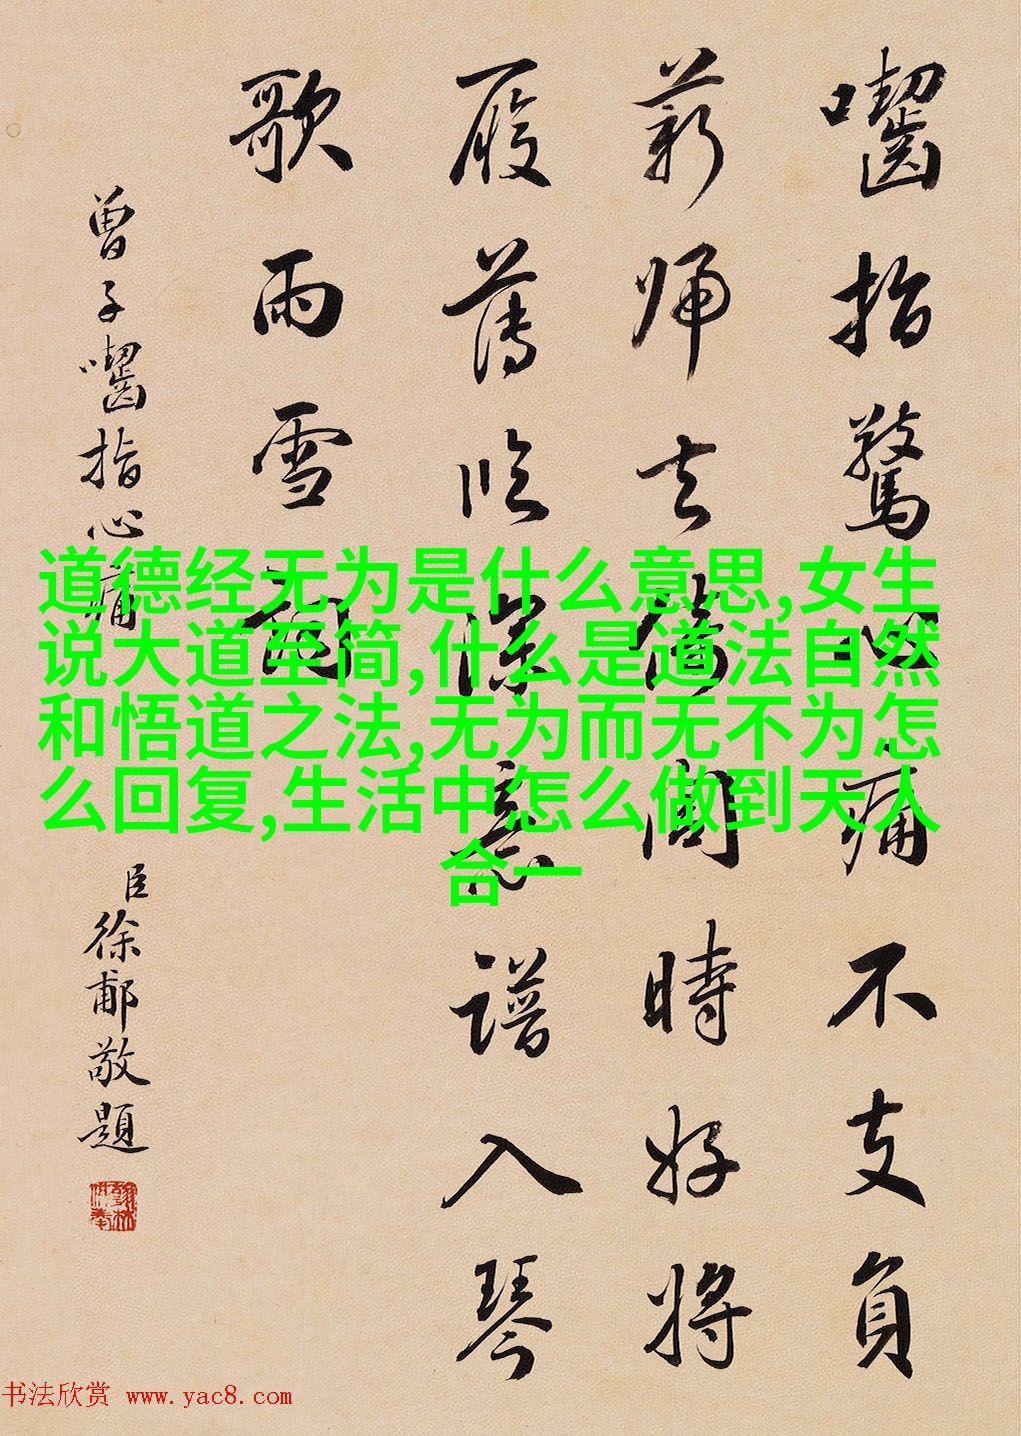 囓指驚心痛不支負
薪歸去倚閭時好將
履薄臨深意譜入琴
歌雨雪
曾子囓指心痛
臣徐郙敬題
道德经无为是什么意思,女生
说大道至简,什么是道法自然
和悟道之法,无为而无不为怎
么回复,生活中怎么做到天人
合一
书法欣赏 www.yac8.com